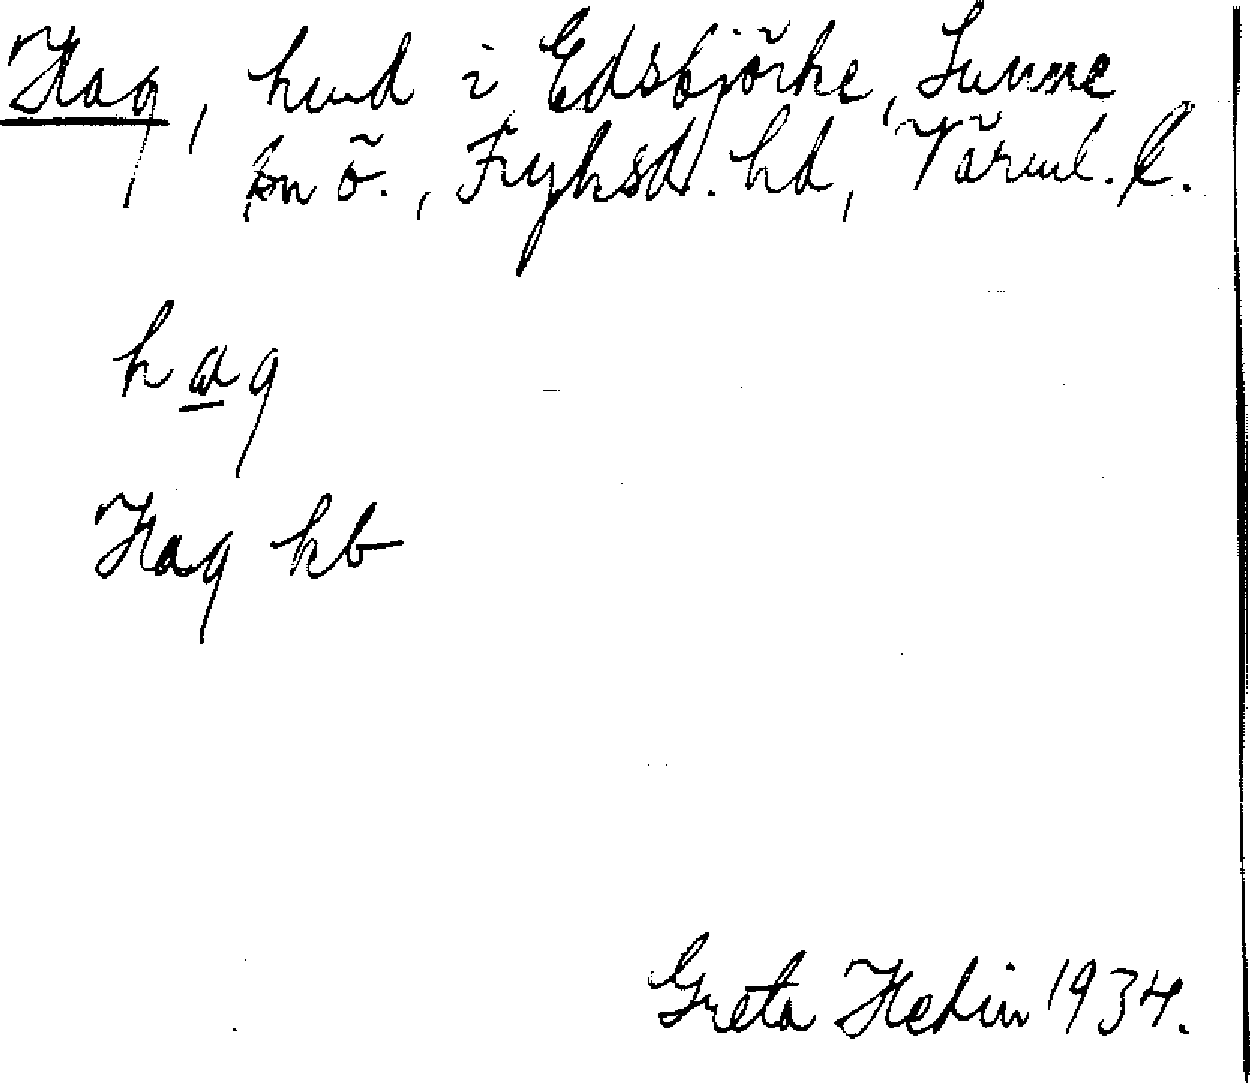 Hag, hmd i Edsbjörke, Sunne
sn ö., Fryksd. hd, Värml. l.
hag
Hag kb
Greta Hedin 1934.